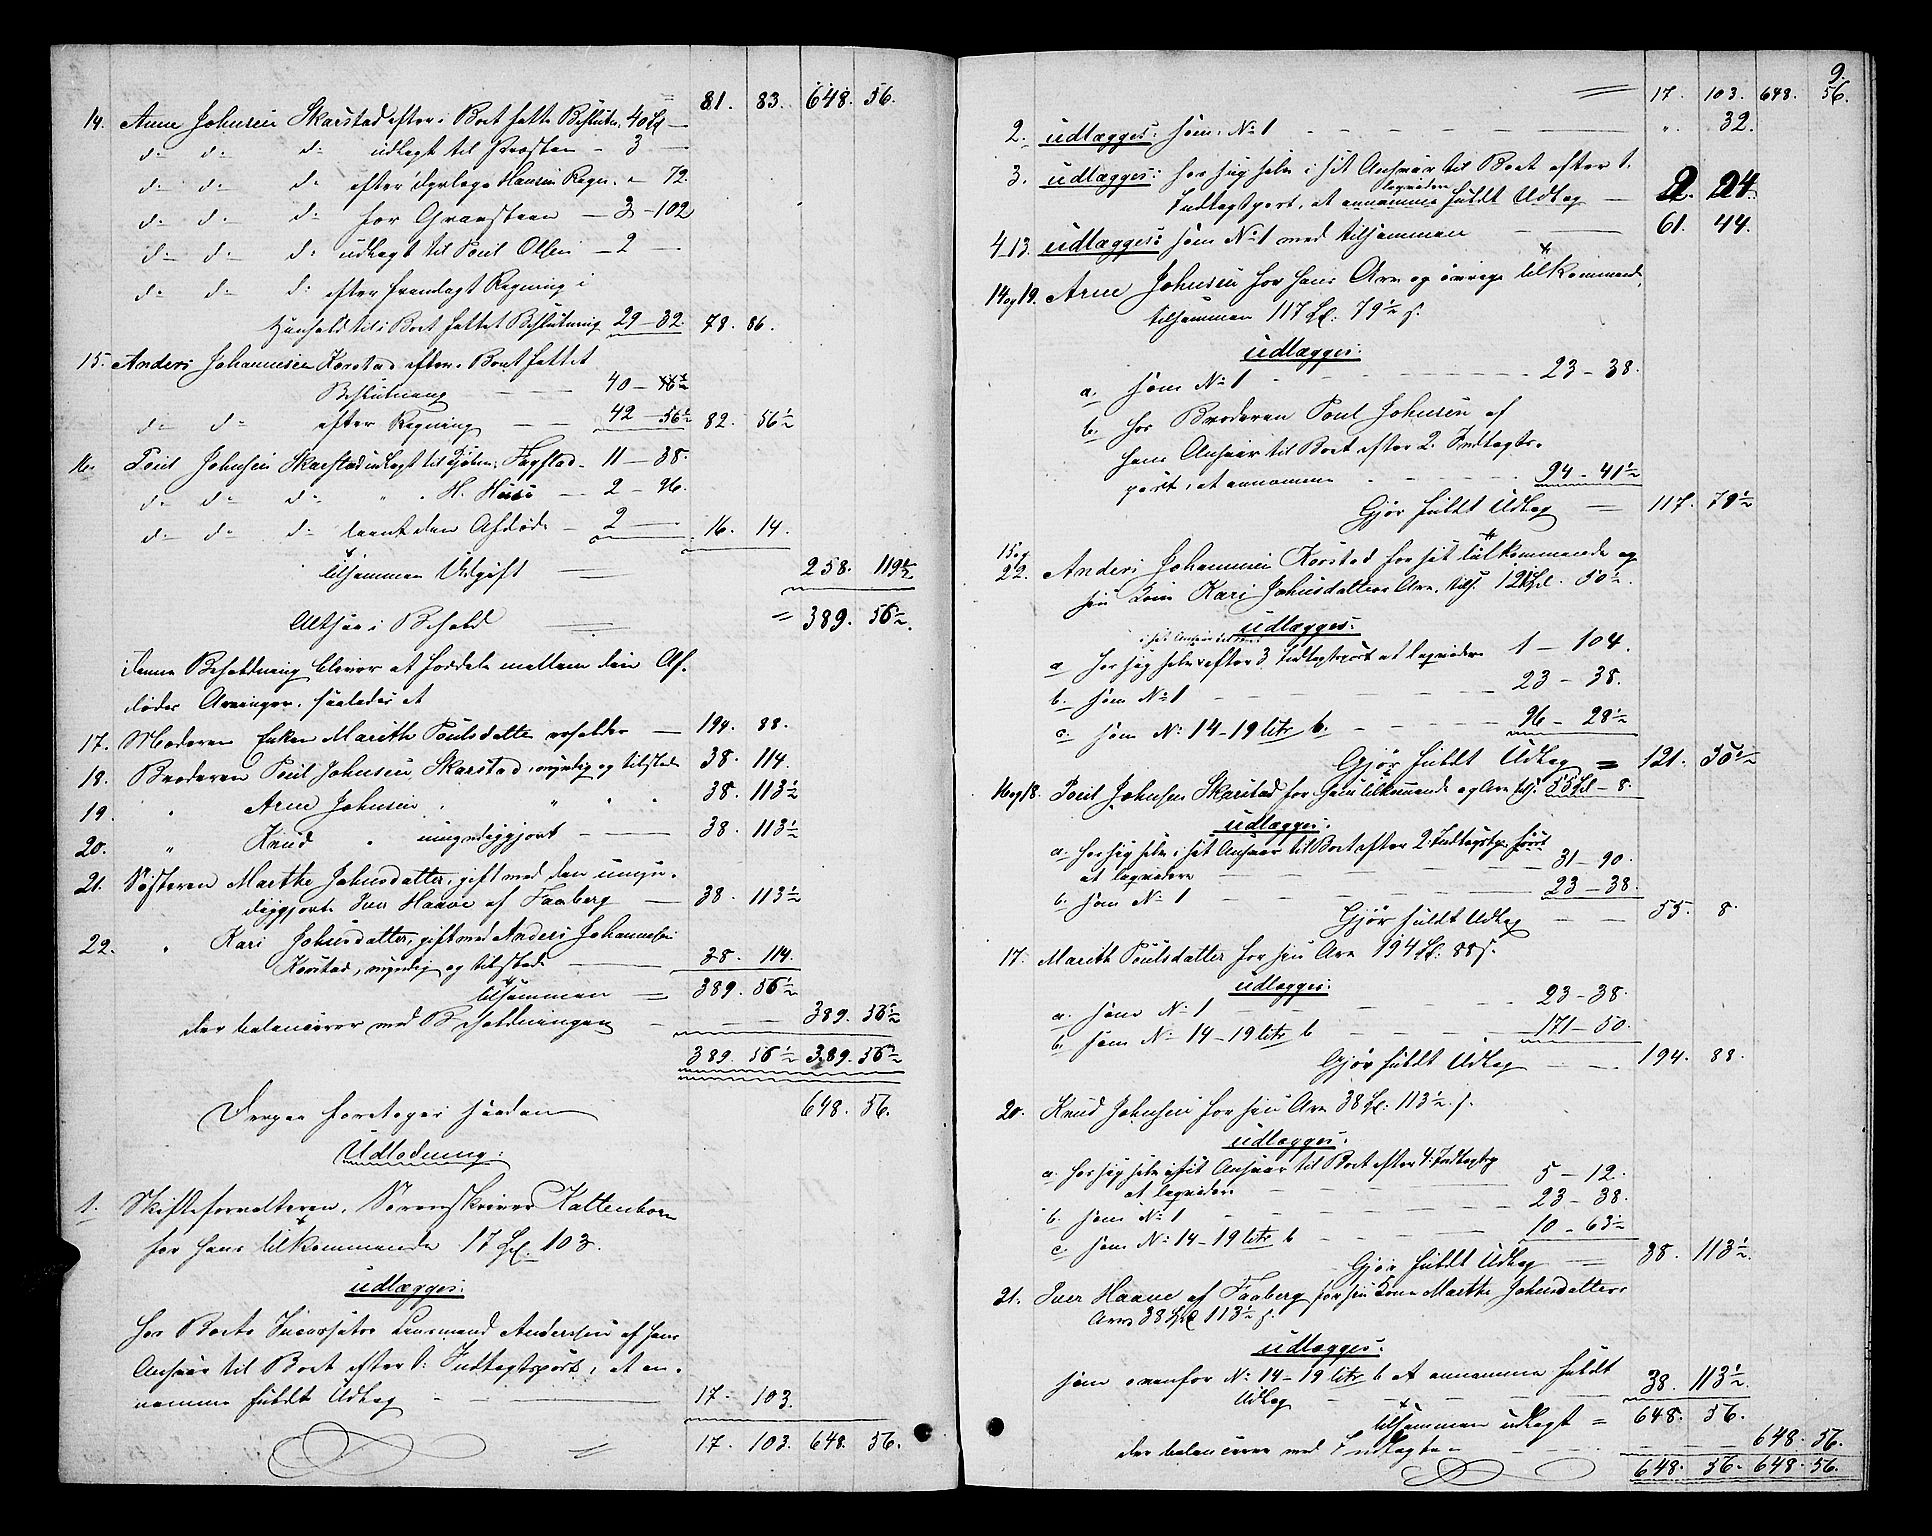 81. 83. 648. 56.
14. Arne Johnsen Skarstad efter i Boet fatte Beslutn. 40 Spd —
do do do udlagt til Præsten — 3 —
do do do efter Dyrlæge Hansens Regn. — 72.
do do do for Gravsteen — 3 — 102
do do do udlagt til Poul Olsen — 2 —
do do do efter fremlagt Regning i
Henhold til i Boet fattet Beslutning 29 — 32. 78. 86.
15. Anders Johannesen Korstad efter i Boet fattet
Beslutning — — 40 —
do do efter Regning — — 42 — 56½ 82. 56½
16. Poul Johnsen Skarstad udlagt til Kjøbm. Fagstad — 11 — 38.
do do do " " H. Huse — 2 — 96.
do do do laant den Afdøde — 2 — 16. 14.
tilsammen Udgift — 258. 119½
Altsaa i Behold — = 389. 56½.
denne Beholdning bliver at fordele mellem den Af-
dødes Arvinger, saaledes at
17. Moderen Enken Marithe Poulsdatter erholder — 194. 88.
18. Broderen Poul Johnsen Skarstad, myndig og tilstede 38. 114.
19. " Arne Johnsen " " 38. 113½
20. " Knud " umyndiggjort — 38. 113½
21. Søsteren Marthe Johnsdatter, gift med den umyn-
diggjorte Iver Haave af Faaberg — 38. 113½
22. " Kari Johnsdatter, gift med Anders Johannesen
Korstad, myndig og tilstede — 38. 114.
tilsammen = 389. 56½
der balancerer med Beholdningen — 389. 56½
389. 56½ 389. 56½
Derpaa foretoges saadan 648. 56.
Udlodning:
1. Skifteforvalteren, Sorenskriver Kaltenborn
for hans tilkommende 17 Spd. 103.
udlægges:
hos Boets Incassator Lensmand Anderssen af hans
Ansvar til Boet efter 1. Indtægtspost, at an-
namme fuldt Udlæg — 17. 103.
= 17. 103. 648. 56.
9.
= 17. 103. 648. 56.
2. udlægges: som No 1 — " 32.
3. udlægges: hos sig selv i sit Ansvar til Boet efter 1.
Indtægtspost, at liqvidere fuldt Udlæg — 2. 24.
4–13. udlægges som No 1 med tilsammen — 61. 44.
14 og 19. Arne Johnsen for hans Arv og øvrige tilkommende,
tilsammen 117 Spd. 79½ s.
udlægges:
a. som No 1 — 23 — 38.
b. hos Broderen Poul Johnsen af
hans Ansvar til Boet efter 2. Indtægts-
post, at annamme — 94 — 41½
Gjør fuldt Udlæg — 117. 79½
15 og
22. Anders Johannesen Korstad for sit tilkommende og
sin Kone Kari Johnsdatters Arv, tils. 121 Spd. 50½.
udlægges:
i sit Ansvar til Boet
a hos sig selv efter 3. Indtægtspost at liqvidere 1 — 104.
b. som No 1 — 23 — 38.
c. som No 14–19 litr b. — 96 — 28½
Gjør fuldt Udlæg = 121. 50½
16 og 18. Poul Johnsen Skarstad for hans tilkommende og Arv tils. 55 Spd — 8.
udlægges:
a. hos sig selv i sit Ansvar til Boet efter 2. Indtægtsp. først
at liqvidere — 31 — 90.
b. som No 1 — 23 — 38.
Gjør fuldt Udlæg — 55. 8.
17. Marithe Poulsdatter for sin Arv 194 Spd. 88 s.
udlægges:
a. som No 1 — 23 — 38.
b. som No 14–19 litr b — 171 — 50.
Gjør fuldt Udlæg — 194. 88.
20. Knud Johnsen for sin Arv 38 Spd. 113½ s.
udlægges:
a. hos sig selv i sit Ansvar til Boet efter 4. Indtægtsp.
at liqvidere — 5 — 12.
b. som No 1 — 23 — 38.
c. som No 14–19 litr b — 10 — 63½
Gjør fuldt Udlæg — 38. 113½.
21. Iver Haave af Faaberg for sin Kone Marthe Johnsdatters
Arv 38 Spd 113½ s.
udlægges:
som ovenfor No 14–19 litr b at annamme fuldt
Udlæg — 38. 113½
tilsammen udlagt = 648. 56.
der balancerer med Indtægten — 648. 56.
648. 56. 648. 56.